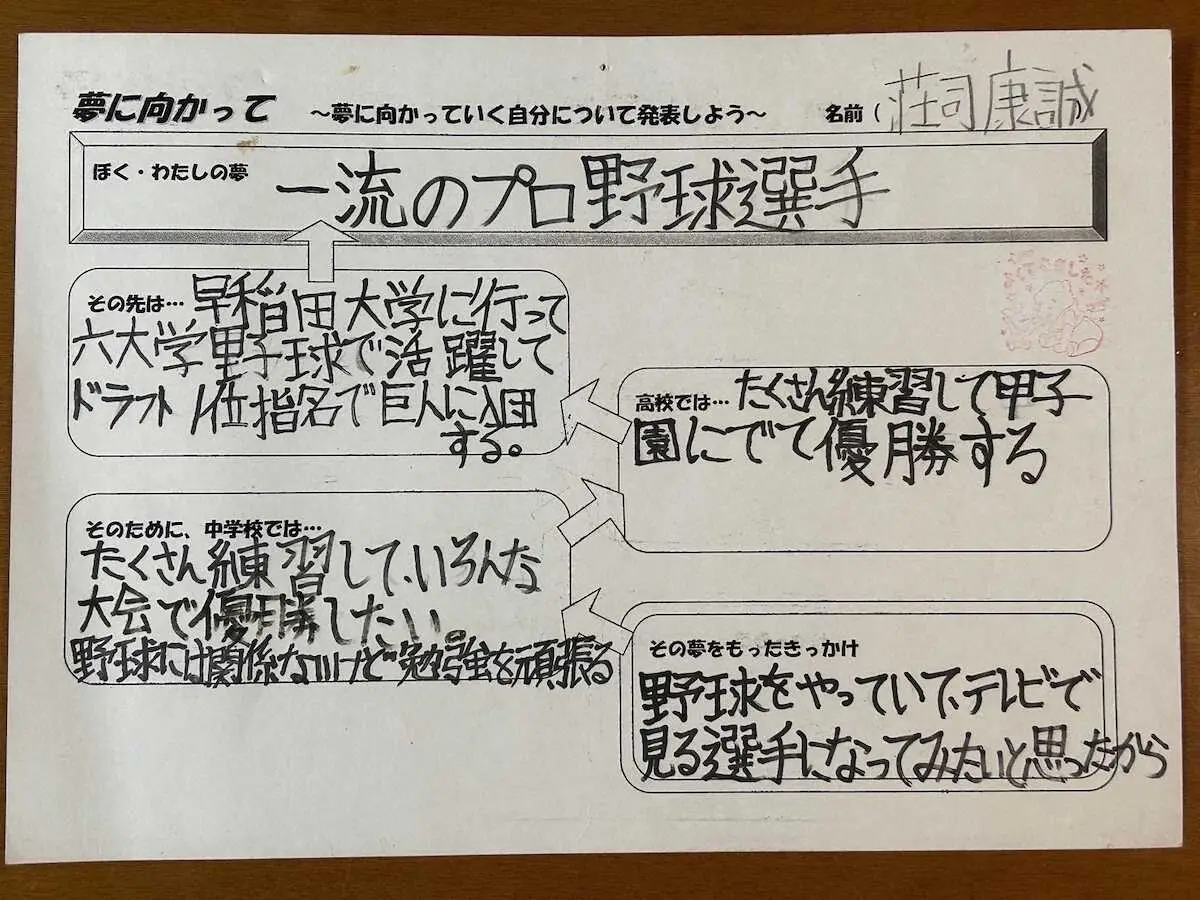 夢に向かって ～夢に向かっていく自分について発表しよう～ 名前（荘司康誠）
ぼく・わたしの夢 一流のプロ野球選手
その先は… 早稲田大学に行って
六大学野球で活躍して
ドラフト1位指名で巨人に入団
する。
高校では… たくさん練習して甲子
園にでて優勝する
そのために、中学校では…
たくさん練習して、いろんな
大会で優勝したい。
野球には関係ないけど勉強を頑張る
その夢をもったきっかけ
野球をやっていて、テレビで
見る選手になってみたいと思ったから